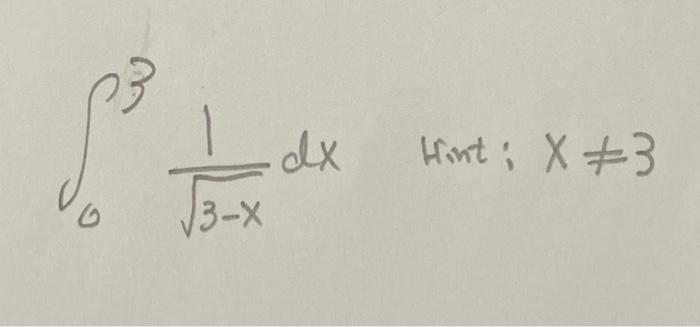 ∫₀³ 1/√(3-x) dx Hint: X ≠ 3